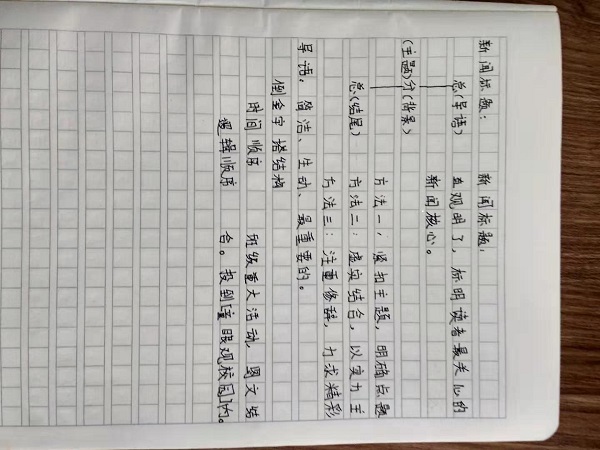 新闻标题: 新闻标题:
总(导语) 直观明了,标明读者最关心的
新闻核心。
(主题)分(背景)
方法一:紧扣主题,明确点题
总(结尾) 方法二:虚实结合,以实为主
方法三:注重修辞,力求精彩
导语:简洁、生动、最重要的。
倒金字塔结构
时间顺序 班级重大活动,图文结
逻辑顺序 合。投到[童眼观校园]内。